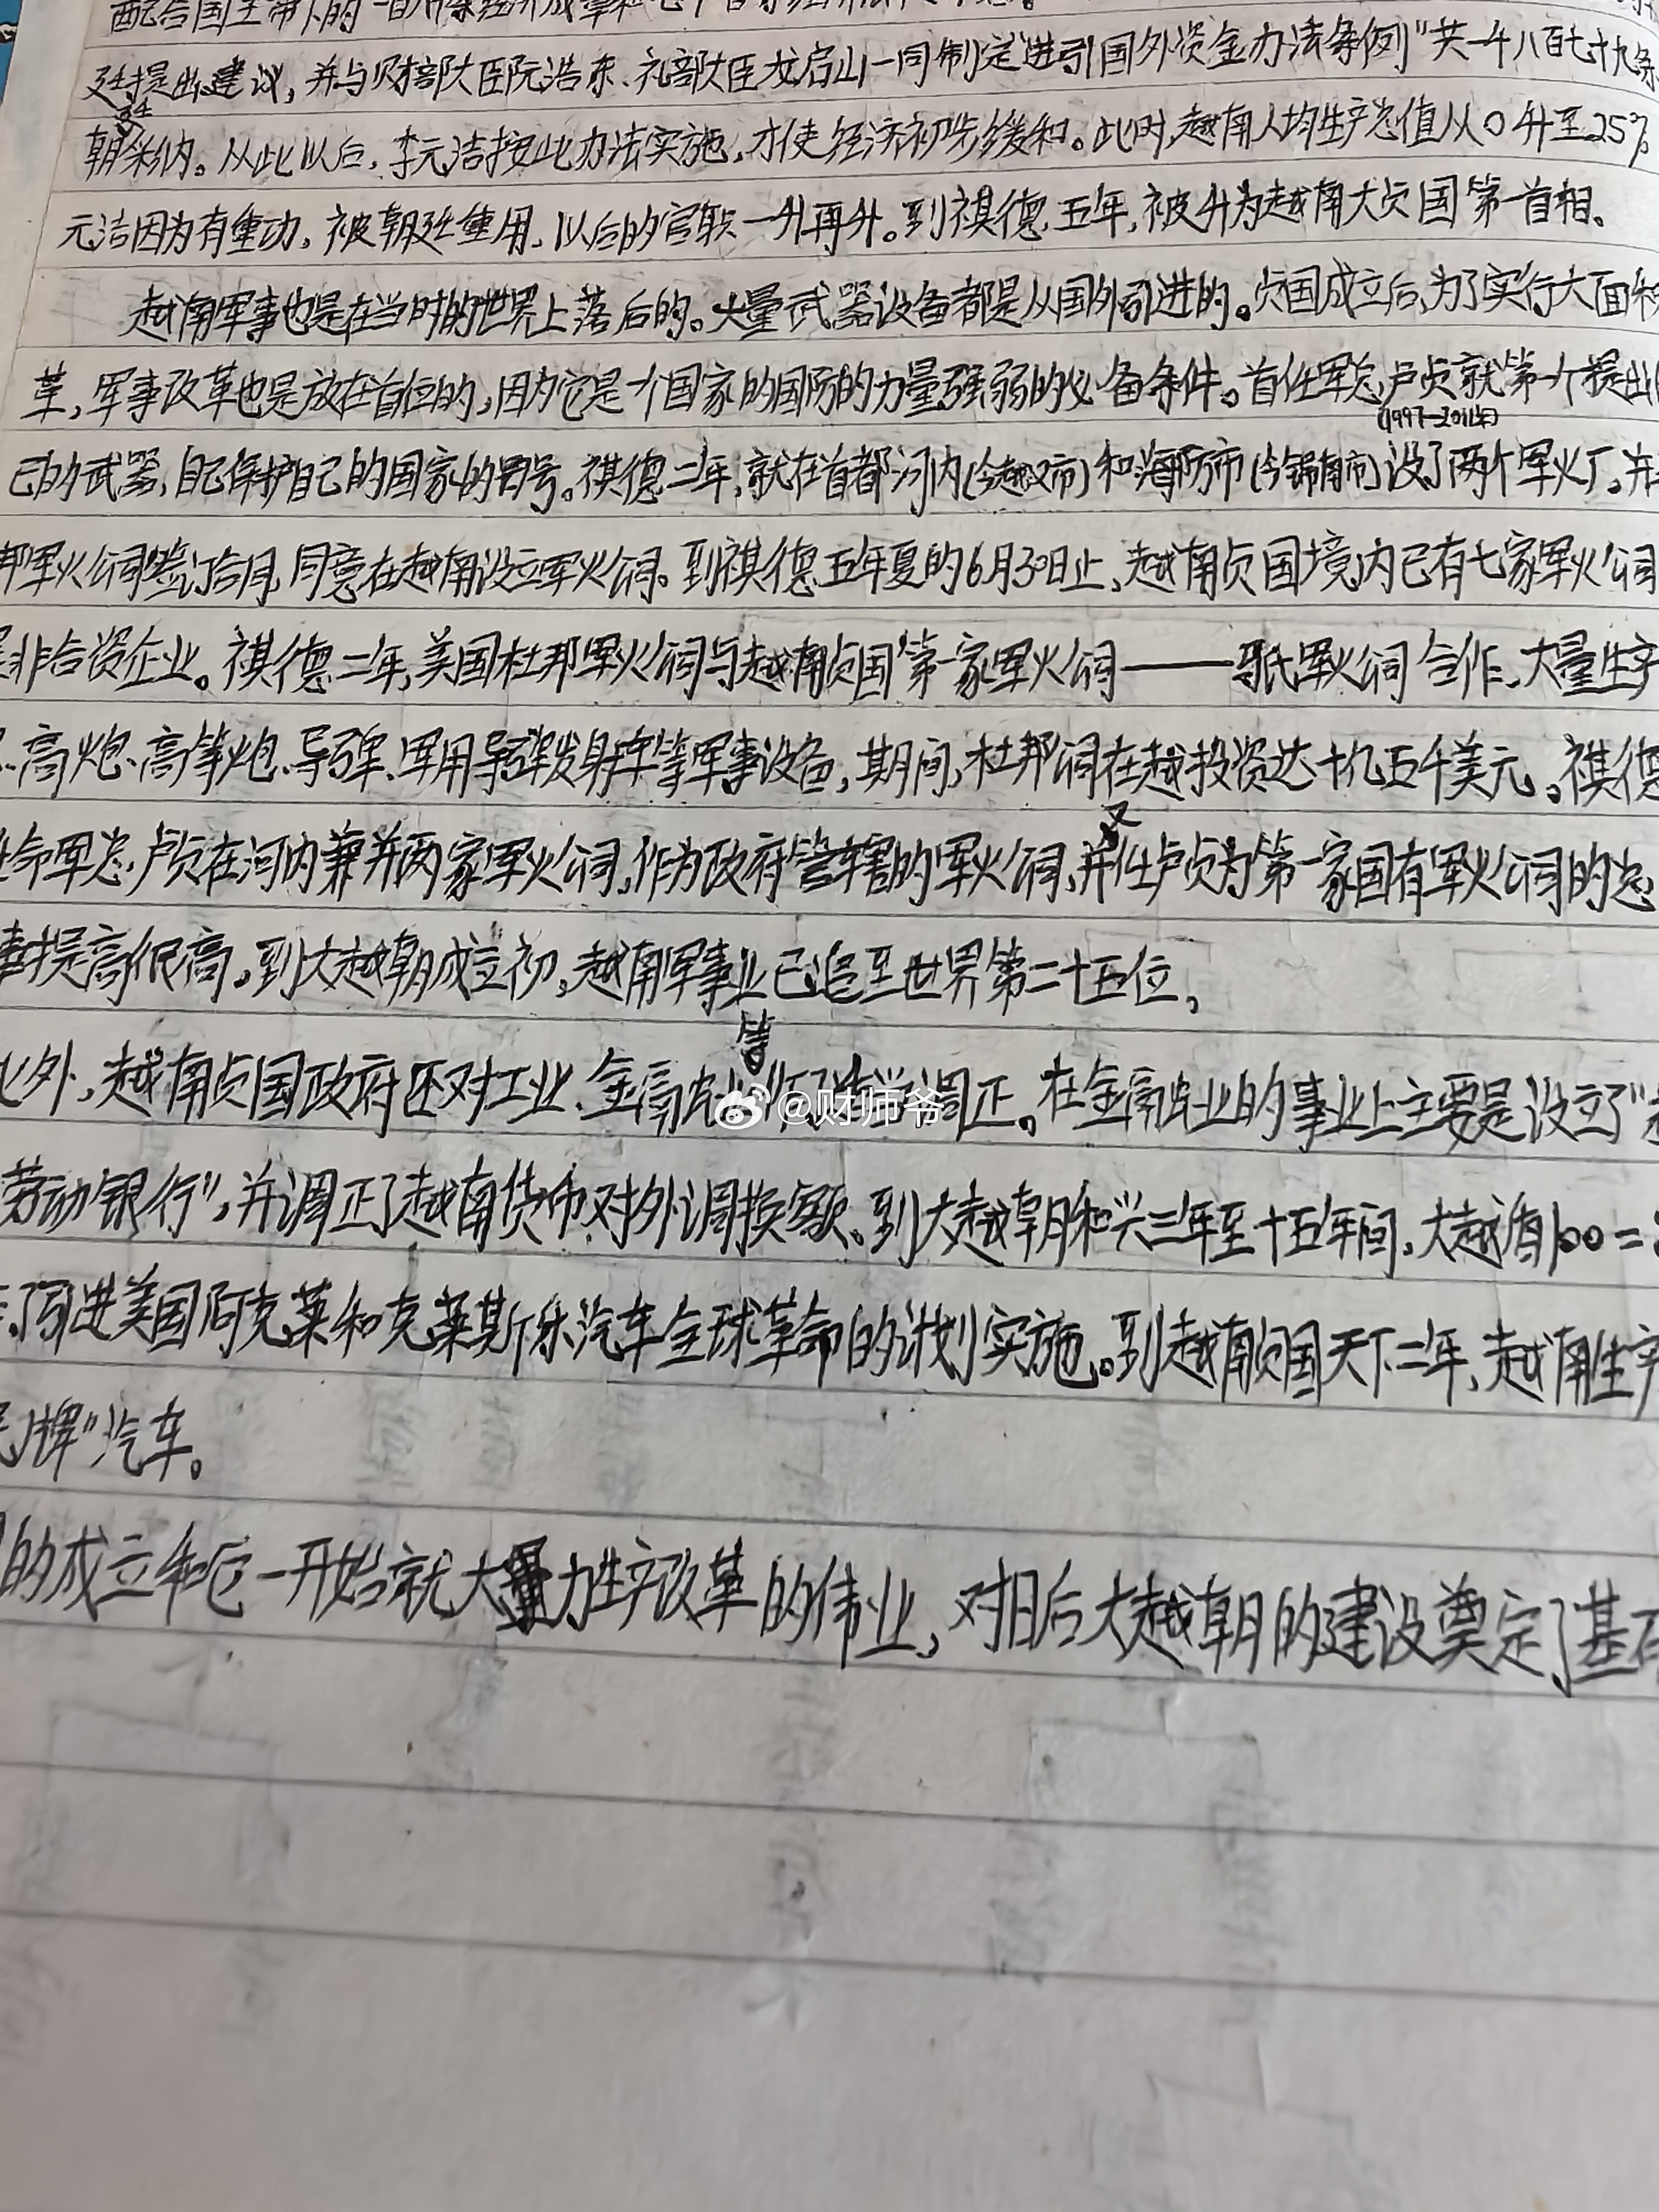 廷提出建议，并与财部大臣阮浩东、礼部大臣龙启山一同制定进引国外资金办法条例"共一千八百七十九条
朝廷采纳。从此以后，李元洁按此办法实施，才使经济初步缓和。此时，越南人均生产总值从0升至25%
元洁因为有重功，被朝廷重用，以后的官职一升再升。到祺德五年，被升为越南大贞国第一首相。
越南军事也是在当时的世界上落后的。大量武器设备都是从国外引进的。贞国成立后，为了实行大面积
革，军事改革也是放在首位的，因为它是一个国家的国防的力量强弱的必备条件。首任军总卢贞就第一个提出
(1997—2011年)
己的武器，自己保护自己的国家的口号。祺德二年，就在首都河内(今越汉市)和海防市(今锦南市)设了两个军火厂。并
邦军火公司签订合同，同意在越南设立军火公司。到祺德五年夏的6月30日止，越南贞国境内已有七家军火公司
是非合资企业。祺德二年，美国杜邦军火公司与越南贞国第一家军火公司——阮氏军火公司合作，大量生产
、高炮、高等炮、导弹、军用导弹发射车等军事设备，期间，杜邦公司在越投资达十亿五千美元。祺德
任命军总卢贞在河内兼并两家军火公司，作为政府管辖的军火公司，并又任卢贞为第一家国有军火公司的总
事提高很高。到大越朝成立初，越南军事业已追至世界第二十五位，
此外，越南贞国政府还对工业、金融业等调正。在金融业的事业上主要是设立了"越
@财师爷
劳动银行"，并调正了越南货币对外调换额。到大越朝和兴三年至十五年间，大越有100=
了引进美国阿克莱和克莱斯乐汽车全球革命的计划实施。到越南贞国天下二年，越南生产
牌"汽车。
的成立和它一开始就大量力生产改革的伟业，对日后大越朝的建设奠定了基石